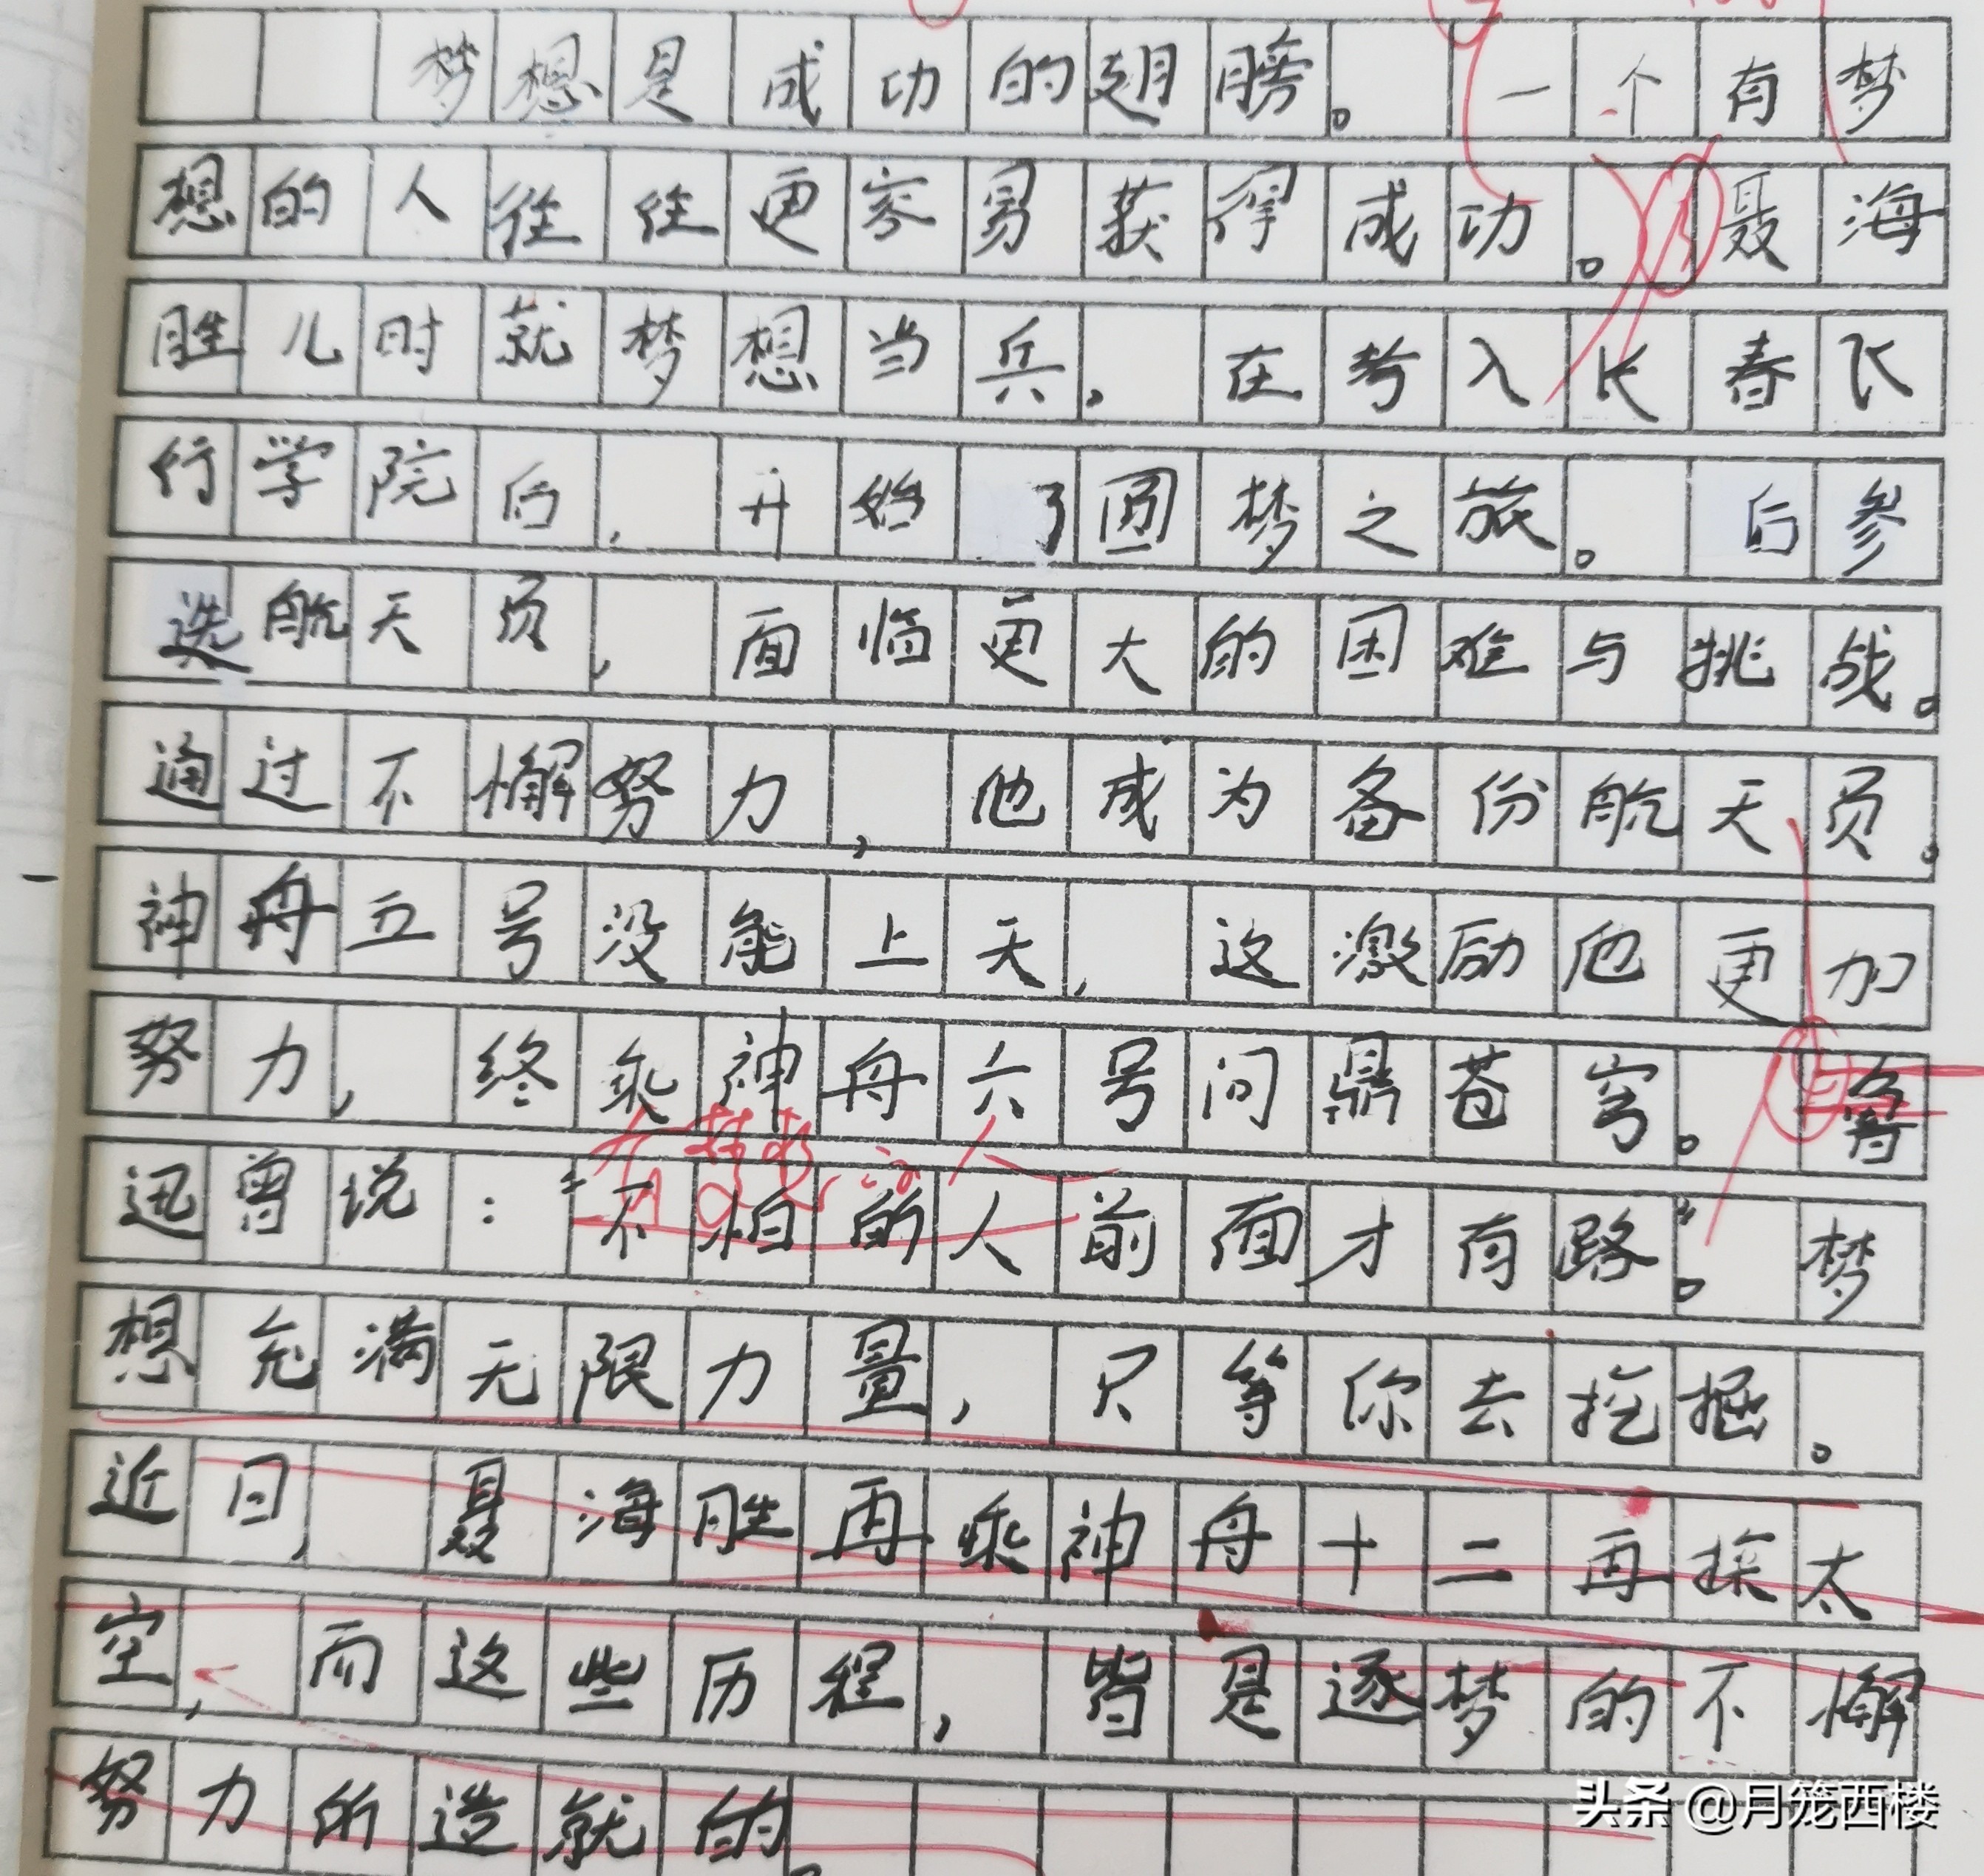 梦想是成功的翅膀。一个有梦
想的人往往更容易获得成功。聂海
胜儿时就梦想当兵,在考入长春飞
行学院后,开始了圆梦之旅。后参
选航天员,面临更大的困难与挑战。
通过不懈努力,他成为备份航天员。
神舟五号没能上天,这激励他更加
努力,终乘神舟六号问鼎苍穹。鲁
有梦想的人
迅曾说:“不怕的人前面才有路”。梦
想充满无限力量,只等你去挖掘。
近日,聂海胜再乘神舟十二再探太
空,而这些历程,皆是逐梦的不懈
努力所造就的
头条 @月笼西楼